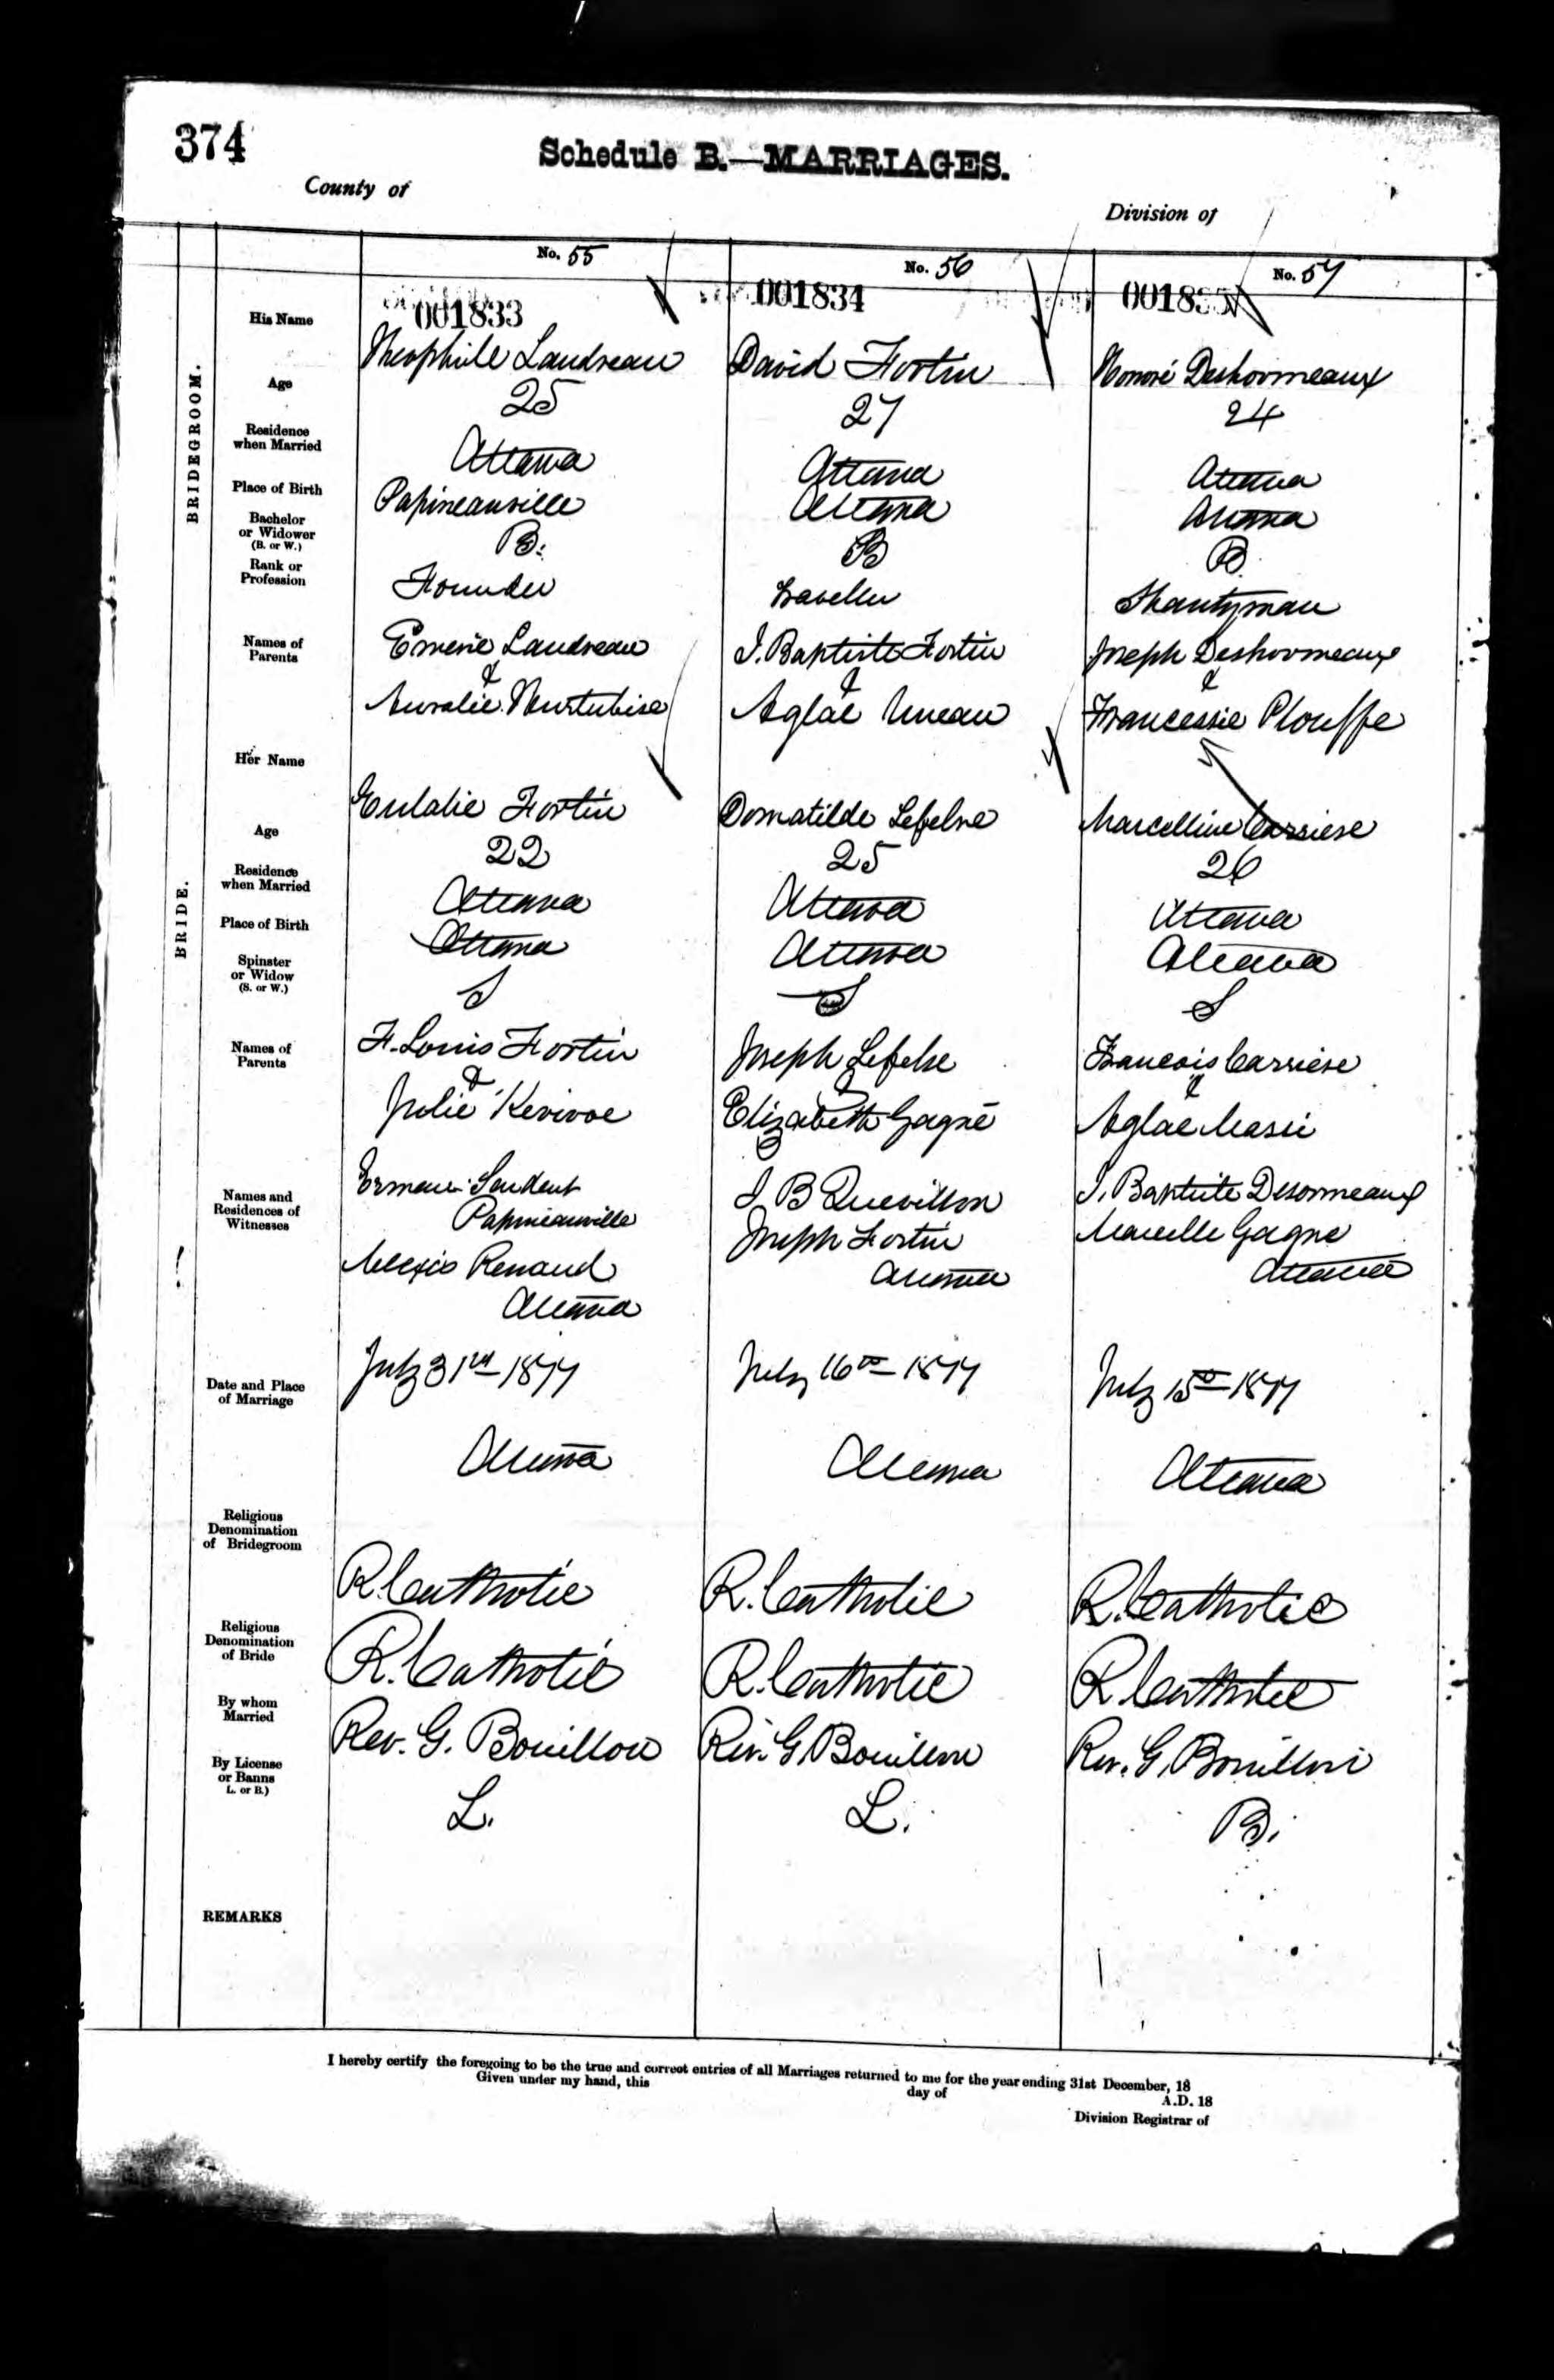 374
Schedule B.—MARRIAGES.
County of
Division of
No. 55
No. 56
No. 57
001833
001834
BRIDEGROOM.
His Name
Theophile Laudreau
David Fortin
Honoré Deshormeaux
Age
25
27
24
Residence when Married
Ottawa
Ottawa
Ottawa
Place of Birth
Papineauville
Ottawa
Ottawa
Bachelor or Widower (B. or W.)
B.
B
B.
Rank or Profession
Founder
Shantyman
Names of Parents
Emerie Laudreau
&
Aurelie Hurtubise
J. Baptiste Fortin
&
Aglae Uneau
Joseph Deshormeaux
&
Francessie Plouffe
BRIDE.
Her Name
Eulalie Fortin
Domatilde Lefebre
Marcelline Carriere
Age
22
25
26
Residence when Married
Ottawa
Ottawa
Ottawa
Place of Birth
Ottawa
Ottawa
Ottawa
Spinster or Widow (S. or W.)
S
S
S
Names of Parents
F. Louis Fortin
&
Julie
Joseph Lefebre
&
Elizabeth Gagné
Francois Carriere
&
Aglae
Names and Residences of Witnesses
Papineauville
Alexis Renaud
Ottawa
J. B Quevillon
Joseph Fortin
Ottawa
J. Baptiste Desormeaux
Gagne
Ottawa
Date and Place of Marriage
July 31st 1877
July 16th 1877
July 15th 1877
Ottawa
Ottawa
Ottawa
Religious Denomination of Bridegroom
R. Catholic
R. Catholic
R. Catholic
Religious Denomination of Bride
R. Catholic
R. Catholic
R. Catholic
By whom Married
Rev. G. Bouillon
Rev. G. Bouillon
Rev. G. Bouillon
By License or Banns L. or B.)
L.
L.
B.
REMARKS
I hereby certify the foregoing to be the true and correct entries of all Marriages returned to me for the year ending 31st December, 18
Given under my hand, this day of A.D. 18
Division Registrar of